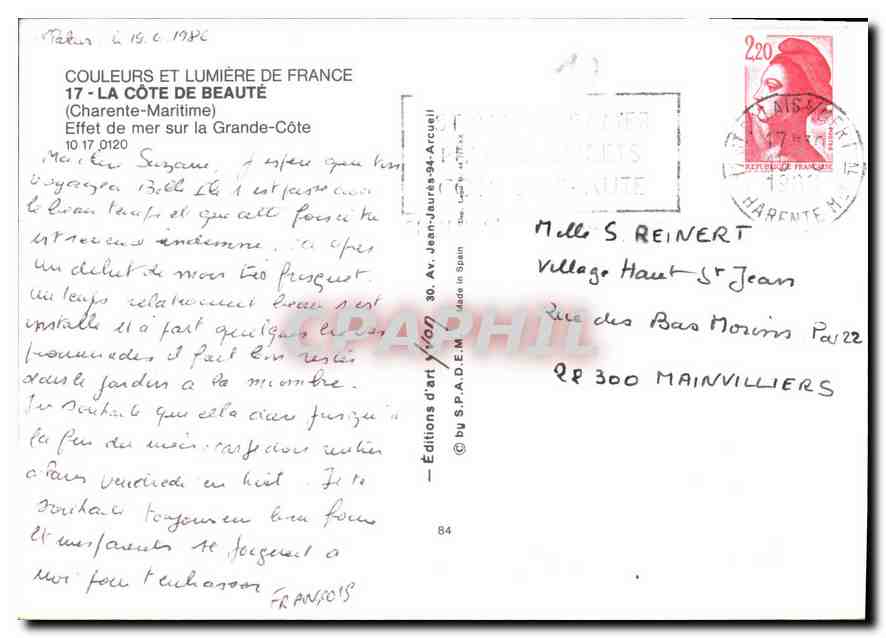 le 19.6.1986
COULEURS ET LUMIÈRE DE FRANCE
17 - LA CÔTE DE BEAUTÉ
(Charente-Maritime)
Effet de mer sur la Grande-Côte
10 17 0120
Ma chère Suzanne, j'espère que ton
voyage à Belle Ile s'est passé avec
le beau temps et que cette fois ci tu
es revenue indemne. Ici après
un début de mois très frisquet
un temps relativement beau s'est
installé et à part quelques
promenades il fait bon rester
dans le jardin à la
Je souhaite que cela dure jusqu'à
la fin du mois, car je dois rentrer
à Paris vendredi en huit. Je te
souhaite toujours en bonne forme
et mes parents se joignent à
moi pour t'embrasser
FRANÇOIS
— Éditions d'art YVON 30. Av. Jean-Jaurès-94-Arcueil
© by S.P.A.D.E.M. Made in Spain
84
2,20
REPUBLIQUE FRANÇAISE
Melle S. REINERT
Village Haut St Jean
Rue des Bas Morins Pav 22
28 300 MAINVILLIERS
CPAPHIL